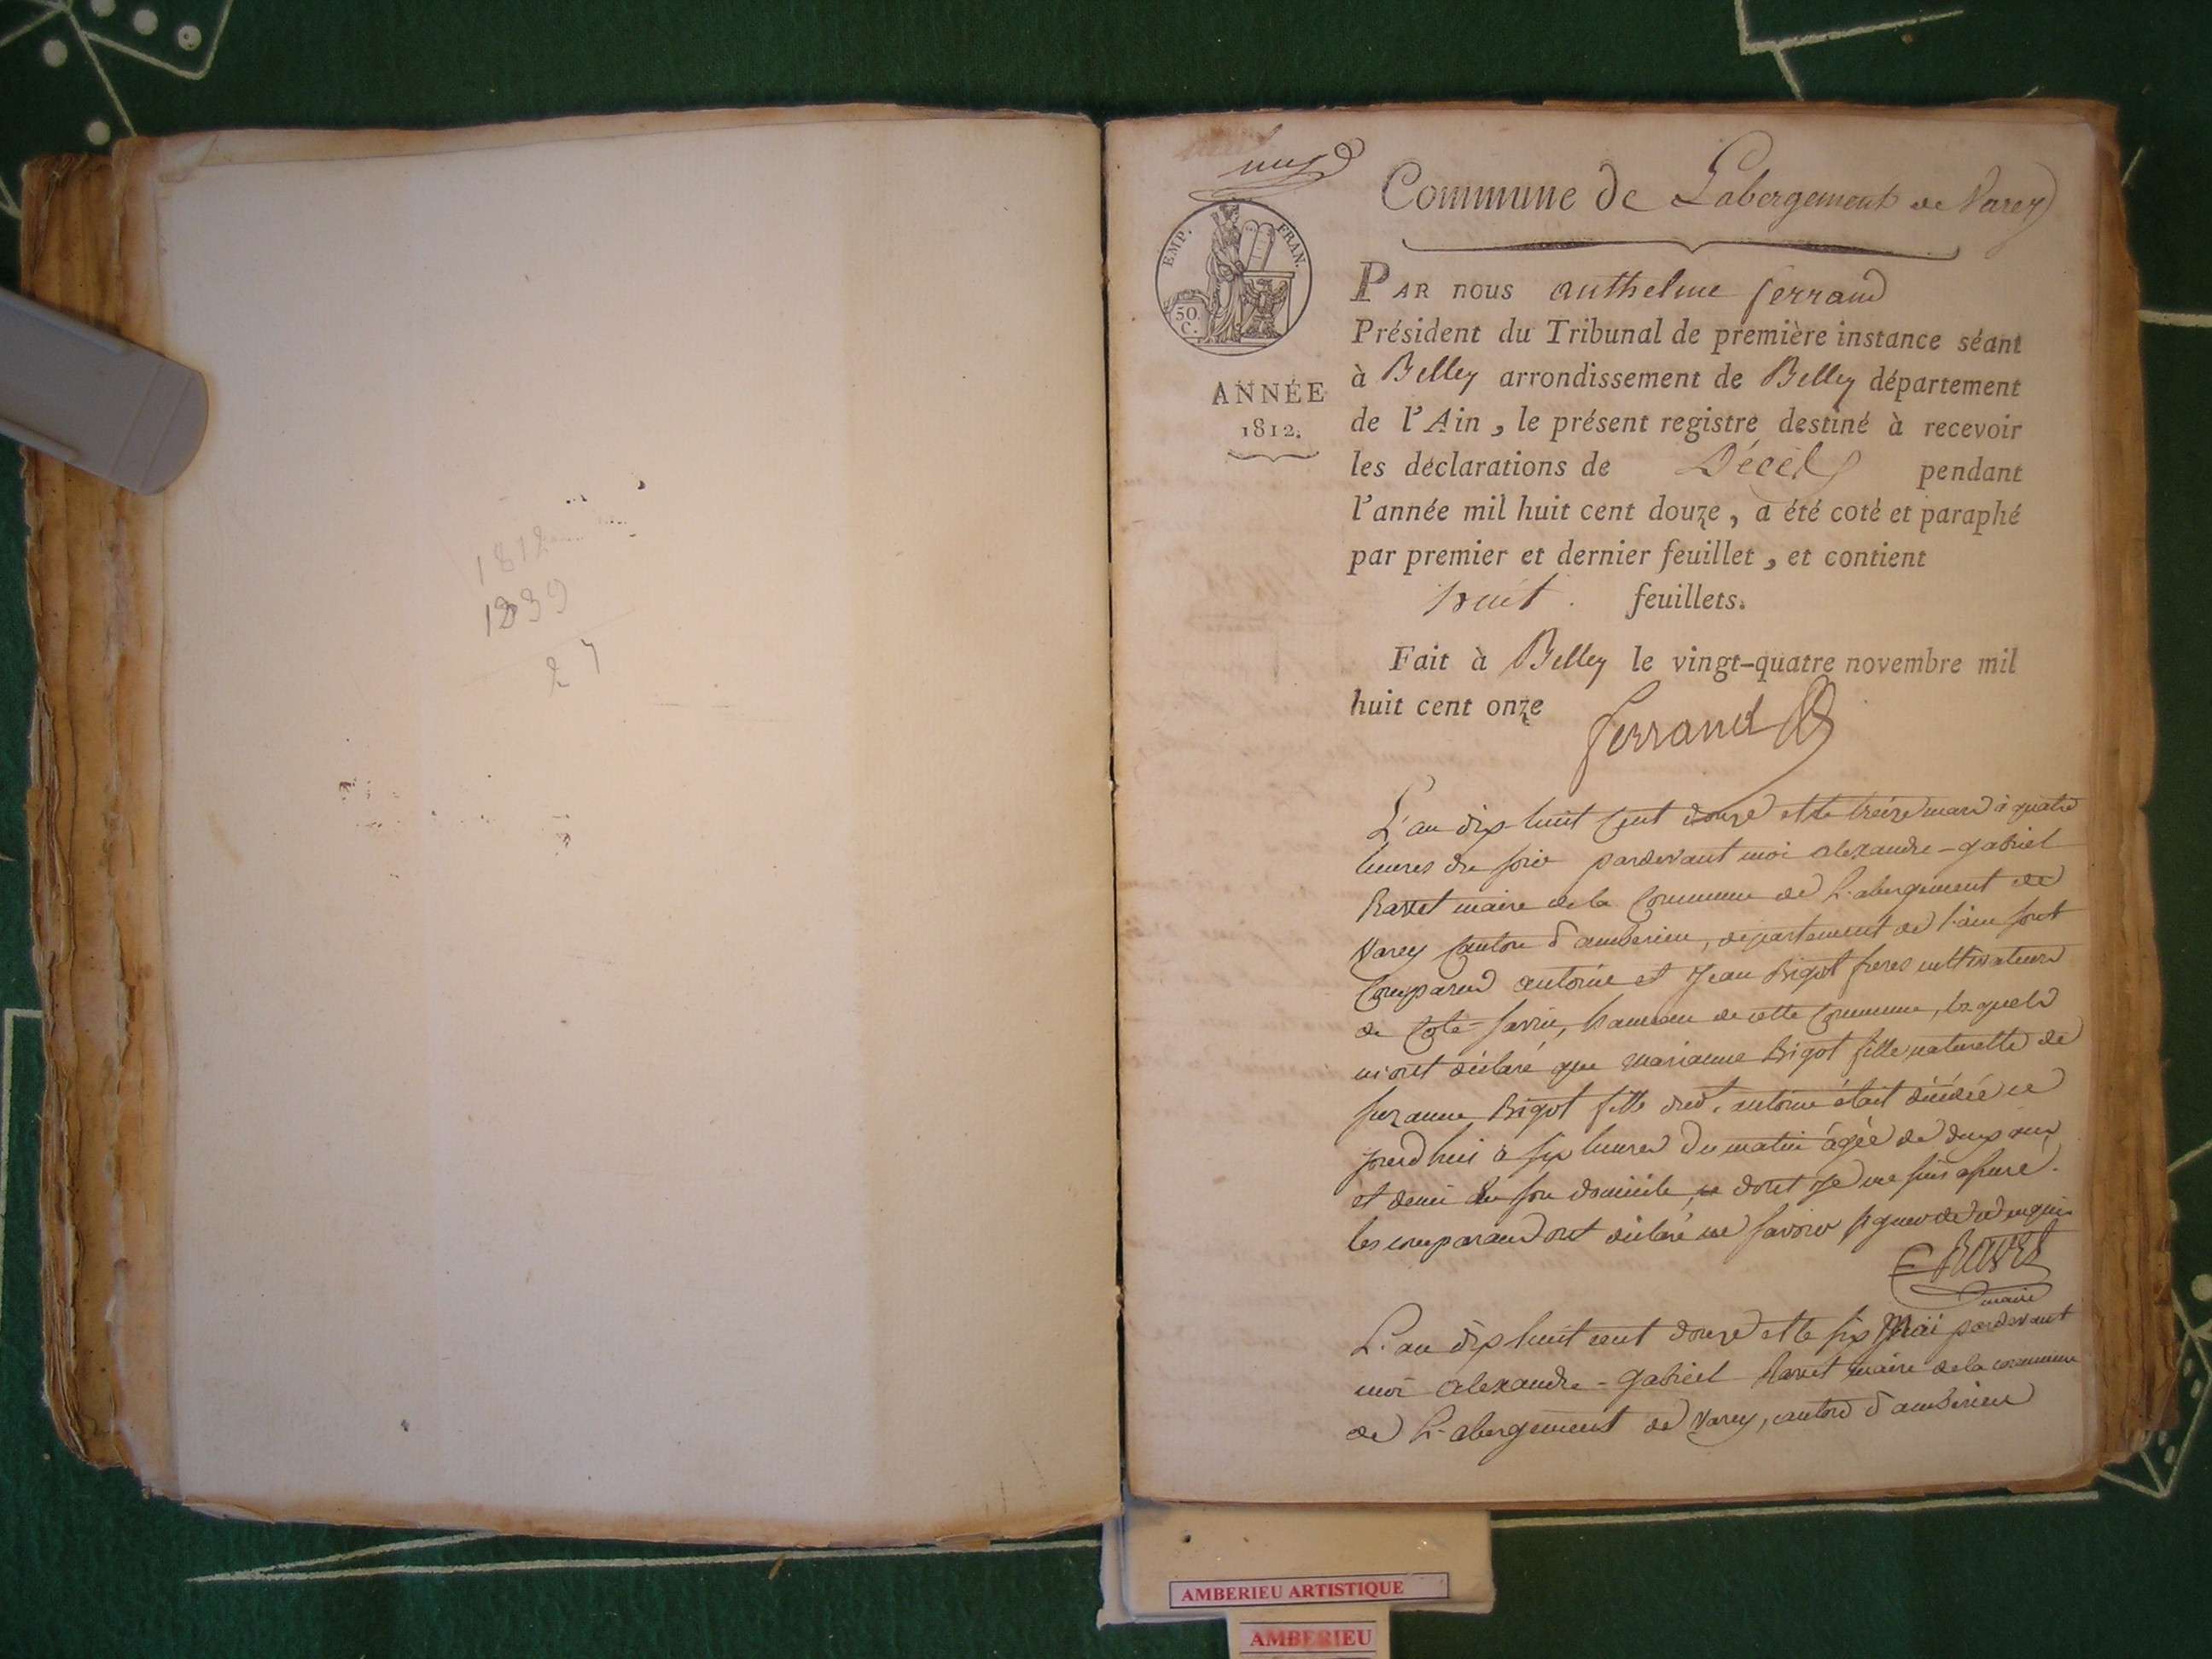 1812
1839
27
EMP. FRAN.
50.
C.
ANNÉE
1812.
Commune de Labergement de Varey
PAR nous anthelme ferrand
Président du Tribunal de première instance séant
à Belley arrondissement de Belley département
de l'Ain, le présent registre destiné à recevoir
les déclarations de Décès pendant
l'année mil huit cent douze, a été coté et paraphé
par premier et dernier feuillet, et contient
huit feuillets.
Fait à Belley le vingt-quatre novembre mil
huit cent onze
ferrand
L'an dix-huit cent douze et le treize mars à quatre
heures du soir pardevant moi alexandre-gabriel
Ravet maire de la Commune de L'abergement de
Varey Canton d'amberieu, departement de l'ain sont
Comparus antoine et Jean Bigot freres cultivateurs
de Côte-savin, hameau de cette Commune, lesquels
m'ont déclaré que marianne Bigot fille naturelle de
suzanne Bigot fille dud. antoine était décédée ce
jourd'hui à six heures du matin âgée de deux ans
et demi en son domicile, dont je me suis assuré.
les comparans ont déclaré ne savoir signer de ce enquis
Ravet
maire
L'an dix huit cent douze et le six Mai pardevant
moi alexandre-gabriel Ravet maire de la commune
de L'abergement de Varey, canton d'amberieu
AMBERIEU ARTISTIQUE
AMBERIEU